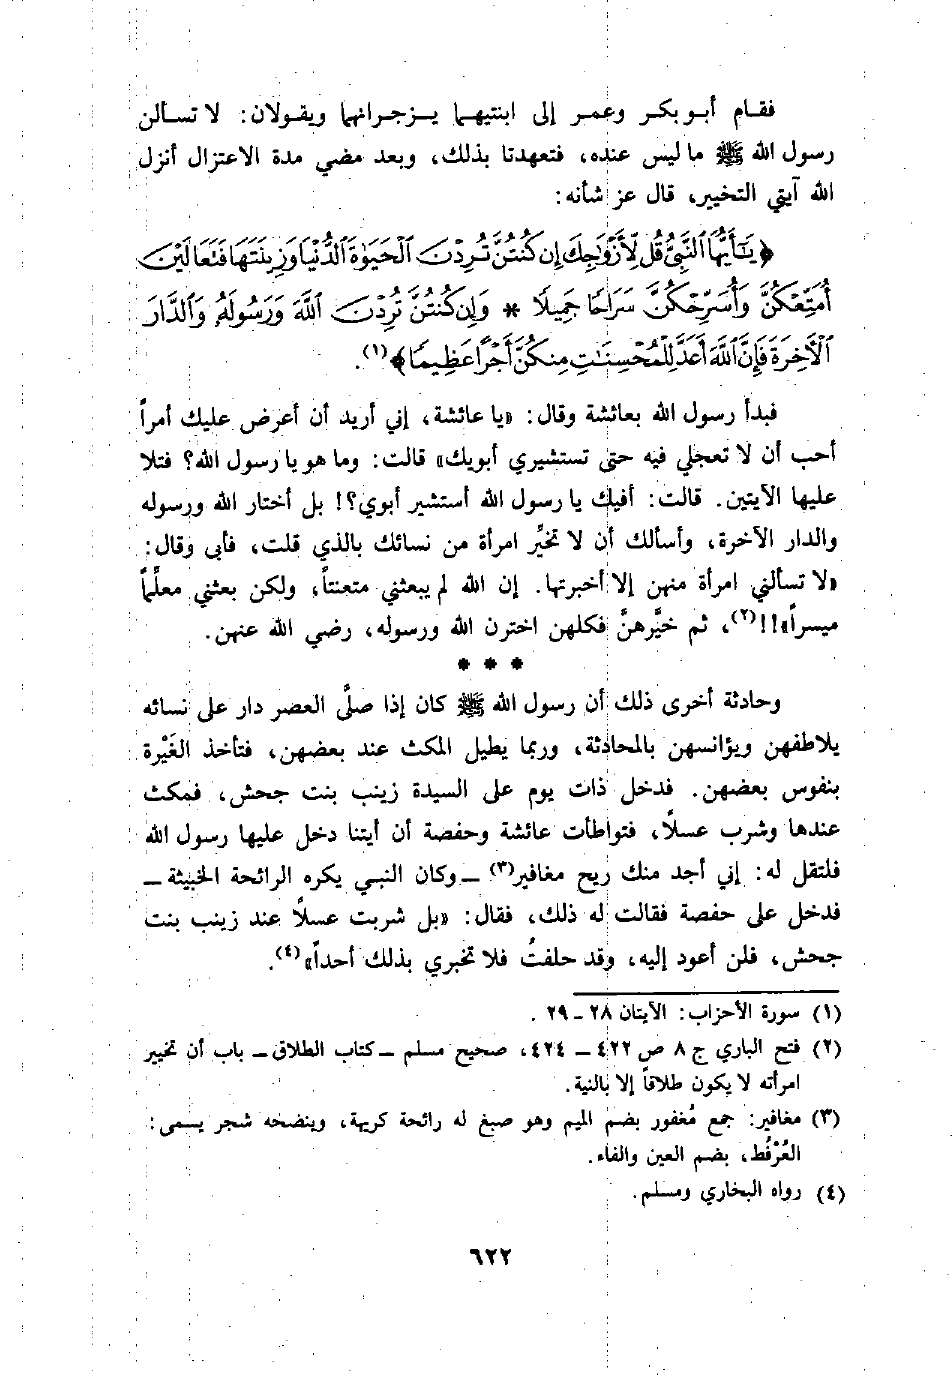 فقام أبو بكر وعمر إلى ابنتيهما يزجرانهما ويقولان: لا تسألن
رسول الله ﷺ ما ليس عنده، فتعهدتا بذلك، وبعد مضي مدة الاعتزال أنزل
الله آيتي التخيير، قال عز شأنه:
﴿يَٰٓأَيُّهَا ٱلنَّبِىُّ قُل لِّأَزْوَٰجِكَ إِن كُنتُنَّ تُرِدْنَ ٱلْحَيَوٰةَ ٱلدُّنْيَا وَزِينَتَهَا فَتَعَالَيْنَ
أُمَتِّعْكُنَّ وَأُسَرِّحْكُنَّ سَرَاحًا جَمِيلًا * وَإِن كُنتُنَّ تُرِدْنَ ٱللَّهَ وَرَسُولَهُۥ وَٱلدَّارَ
ٱلْأَخِرَةَ فَإِنَّ ٱللَّهَ أَعَدَّ لِلْمُحْسِنَٰتِ مِنكُنَّ أَجْرًا عَظِيمًا﴾(١).
فبدأ رسول الله بعائشة وقال: «يا عائشة، إني أريد أن أعرض عليك أمراً
أحب أن لا تعجلي فيه حتى تستشيري أبويك» قالت: وما هو يا رسول الله؟ فتلا
عليها الآيتين. قالت: أفيك يا رسول الله أستشير أبوي؟! بل أختار الله ورسوله
والدار الآخرة، وأسألك أن لا تخيِّر امرأة من نسائك بالذي قلت، فأبى وقال:
«لا تسألني امرأة منهن إلا أخبرتها. إن الله لم يبعثني متعنتاً، ولكن بعثني معلِّماً
ميسراً»!!(٢)، ثم خيَّرهنَّ فكلهن اخترن الله ورسوله، رضي الله عنهن.
* * *
وحادثة أخرى ذلك أن رسول الله ﷺ كان إذا صلَّى العصر دار على نسائه
يلاطفهن ويؤانسهن بالمحادثة، وربما يطيل المكث عند بعضهن، فتأخذ الغَيْرة
بنفوس بعضهن. فدخل ذات يوم على السيدة زينب بنت جحش، فمكث
عندها وشرب عسلاً، فتواطأت عائشة وحفصة أن أيتنا دخل عليها رسول الله
فلتقل له: إني أجد منك ريح مغافير(٣) ــ وكان النبي يكره الرائحة الخبيثة ــ
فدخل على حفصة فقالت له ذلك، فقال: «بل شربت عسلاً عند زينب بنت
جحش، فلن أعود إليه، وقد حلفتُ فلا تخبري بذلك أحداً»(٤).
(١) سورة الأحزاب: الآيتان ٢٨ ــ ٢٩ .
(٢) فتح الباري ج ٨ ص ٤٢٢ ــ ٤٢٤، صحيح مسلم ــ كتاب الطلاق ــ باب أن تخيير
امرأته لا يكون طلاقاً إلا بالنية.
(٣) مغافير: جمع مُغفور بضم الميم وهو صبغ له رائحة كريهة، وينضحه شجر يسمى:
العُرْفُط، بضم العين والفاء.
(٤) رواه البخاري ومسلم.
٦٢٢